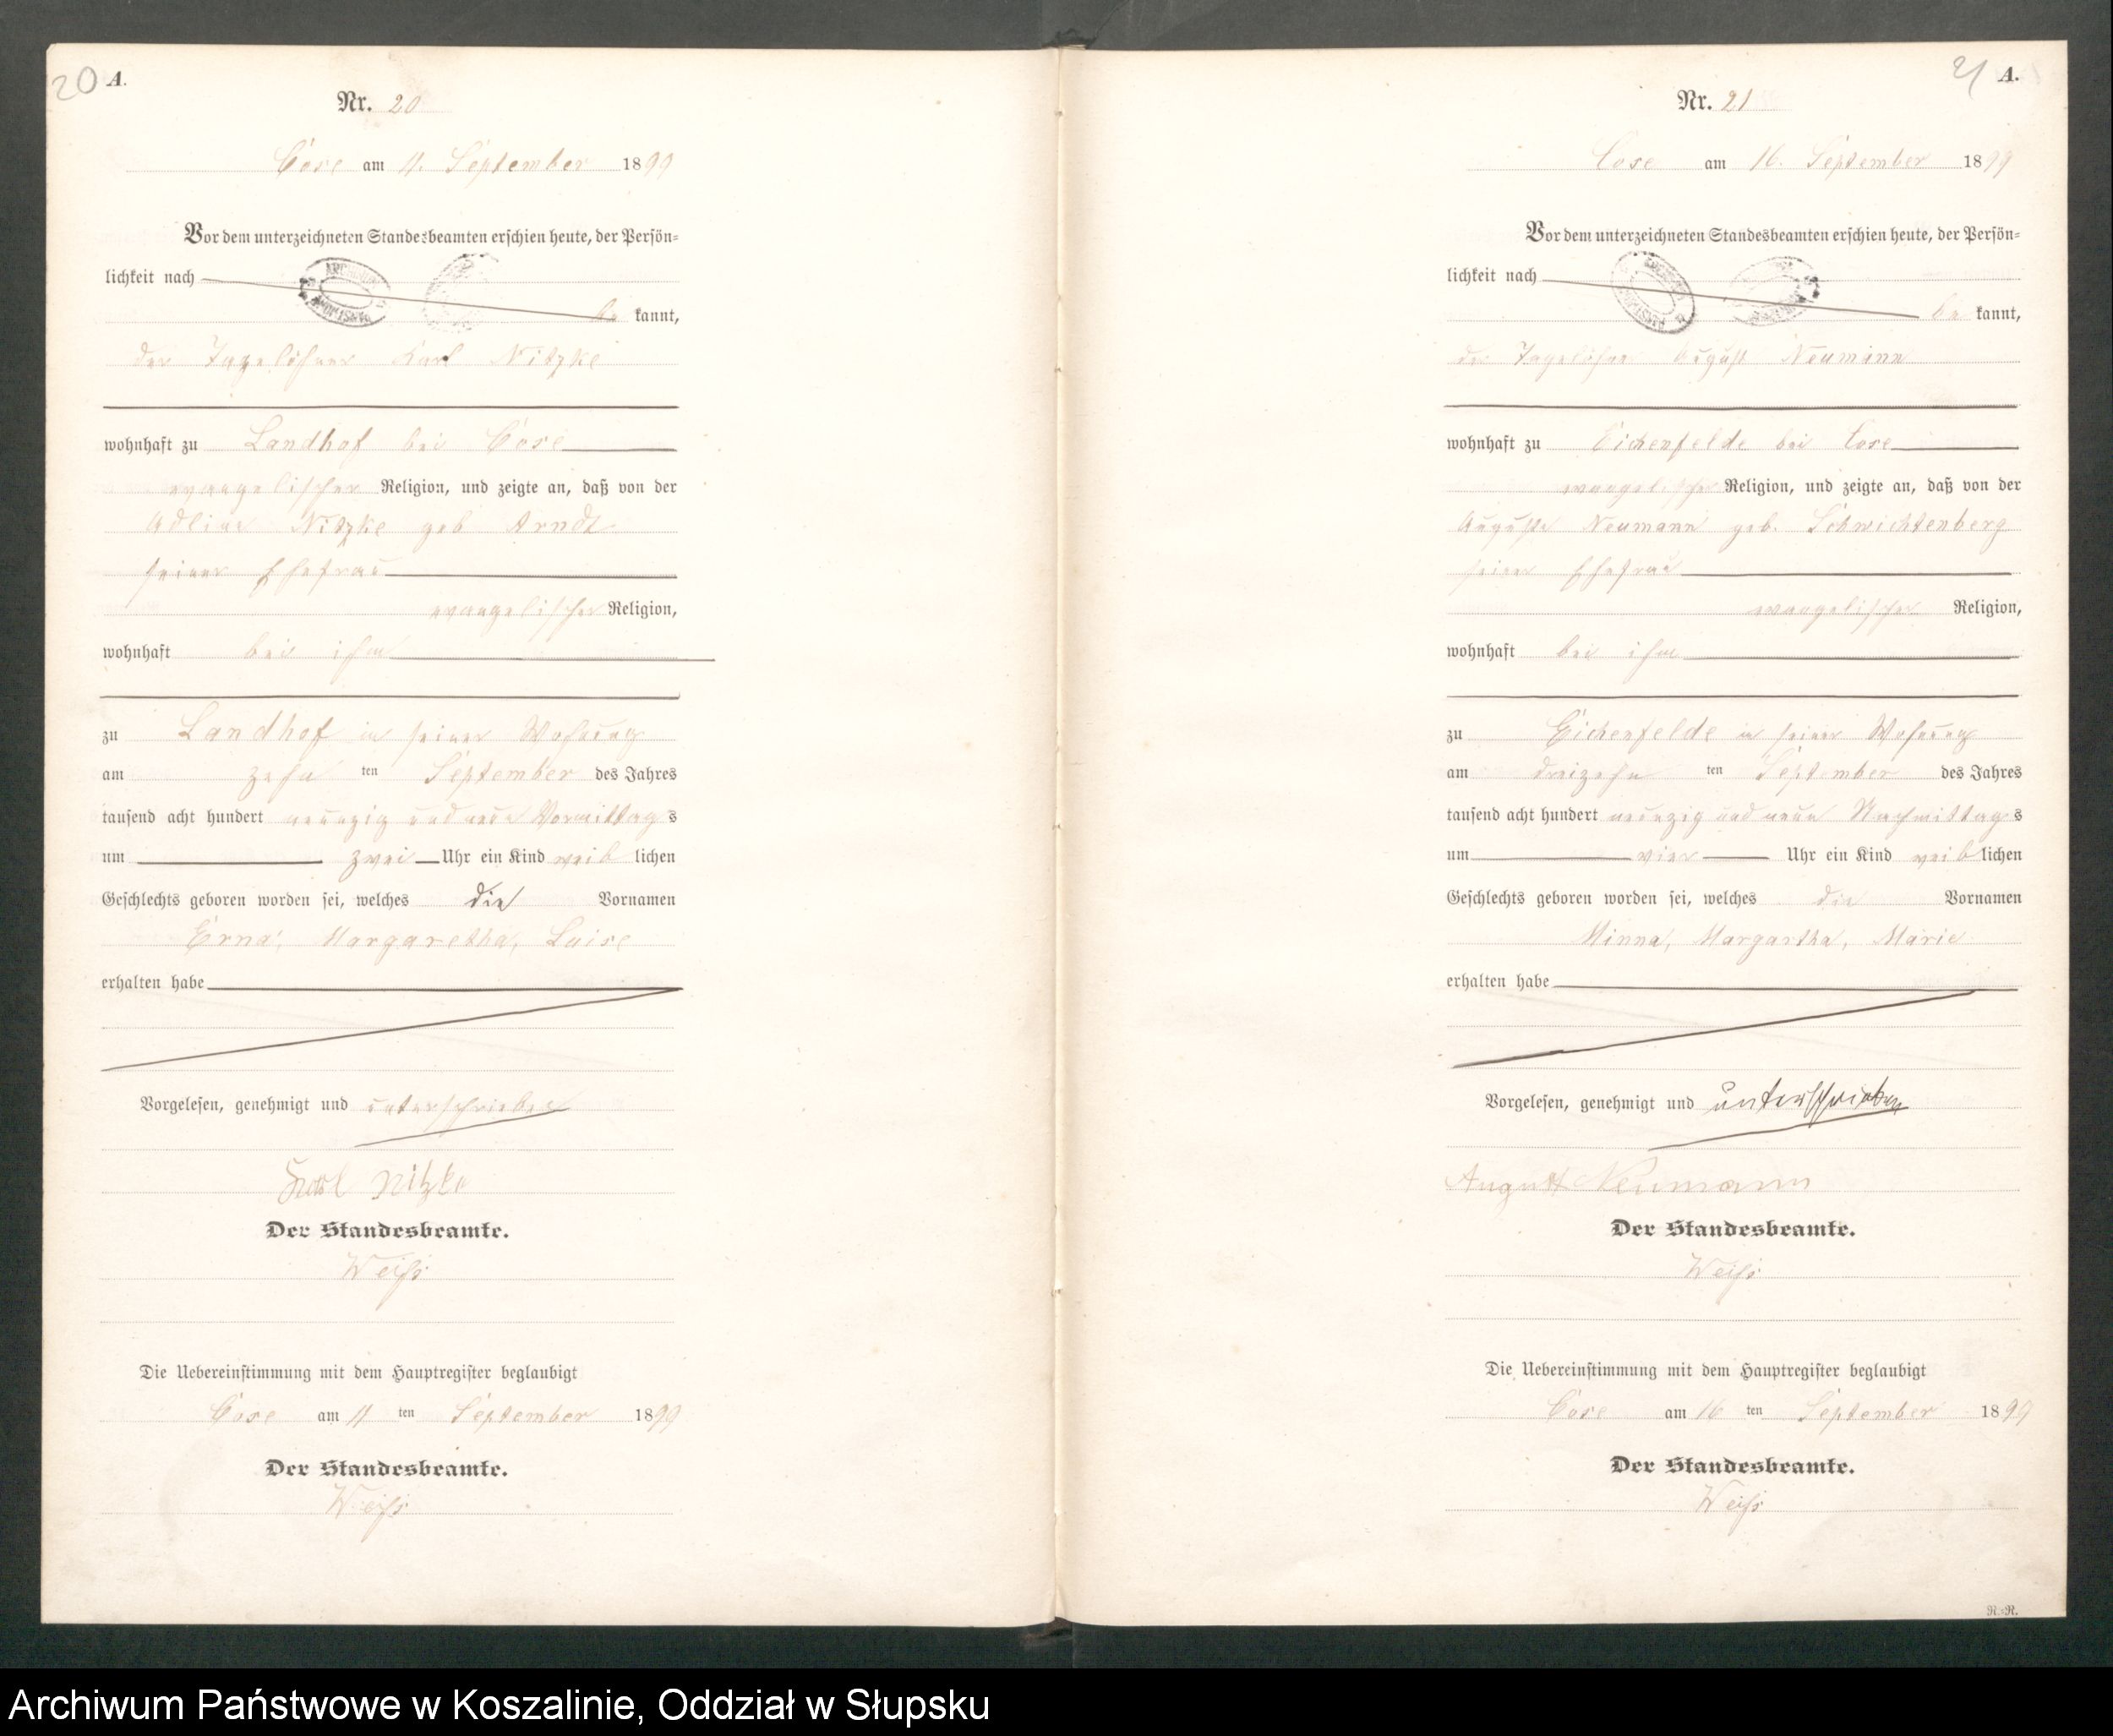 20 A.
Nr. 20
Cose am 11. September 1899
Vor dem unterzeichneten Standesbeamten erschien heute, der Persön-
lichkeit nach
be kannt,
der Tagelöhner Karl Nitzke
wohnhaft zu Landhof bei Cose
evangelischer Religion, und zeigte an, daß von der
Adline Nitzke geb Arndt
seiner Ehefrau
evangelischer Religion,
wohnhaft bei ihm
zu Landhof in seiner Wohnung
am zehn ten September des Jahres
tausend acht hundert neunzig und neun Vormittag s
um zwei Uhr ein Kind weib lichen
Geschlechts geboren worden sei, welches die Vornamen
Erna, Margaretha, Luise
erhalten habe
Vorgelesen, genehmigt und unterschrieben
Karl Nitzke
Der Standesbeamte.
Weiß
Die Uebereinstimmung mit dem Hauptregister beglaubigt
Cose am 11 ten September 1899
Der Standesbeamte.
Weiß
21 A.
Nr. 21
Cose am 16. September 1899
Vor dem unterzeichneten Standesbeamten erschien heute, der Persön-
lichkeit nach
be kannt,
der Tagelöhner August Neumann
wohnhaft zu Eichenfelde bei Cose
evangelischer Religion, und zeigte an, daß von der
Auguste Neumann geb. Schwichtenberg
seiner Ehefrau
evangelischer Religion,
wohnhaft bei ihm
zu Eichenfelde in seiner Wohnung
am dreizehn ten September des Jahres
tausend acht hundert neunzig und neun Nachmittag s
um vier Uhr ein Kind weib lichen
Geschlechts geboren worden sei, welches die Vornamen
Minna, Margartha, Marie
erhalten habe
Vorgelesen, genehmigt und unterschrieben
August Neumann
Der Standesbeamte.
Weiß
Die Uebereinstimmung mit dem Hauptregister beglaubigt
Cose am 16 ten September 1899
Der Standesbeamte.
Weiß
R.-R.
Archiwum Państwowe w Koszalinie, Oddział w Słupsku